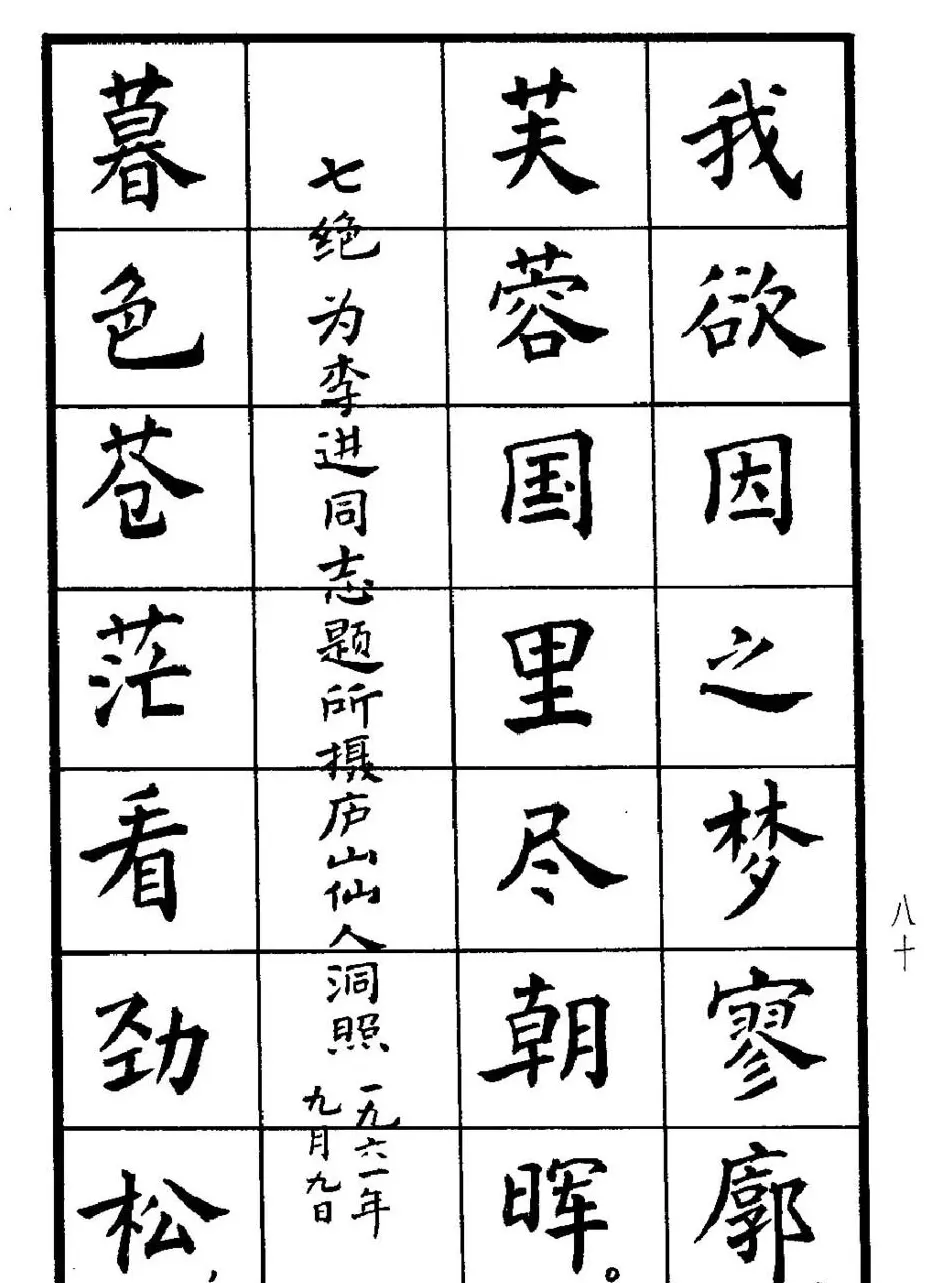 我欲因之梦寥廓
芙蓉国里尽朝晖。
七绝 为李进同志题所摄庐山仙人洞照
一九六一年
九月九日
暮色苍茫看劲松，
八十